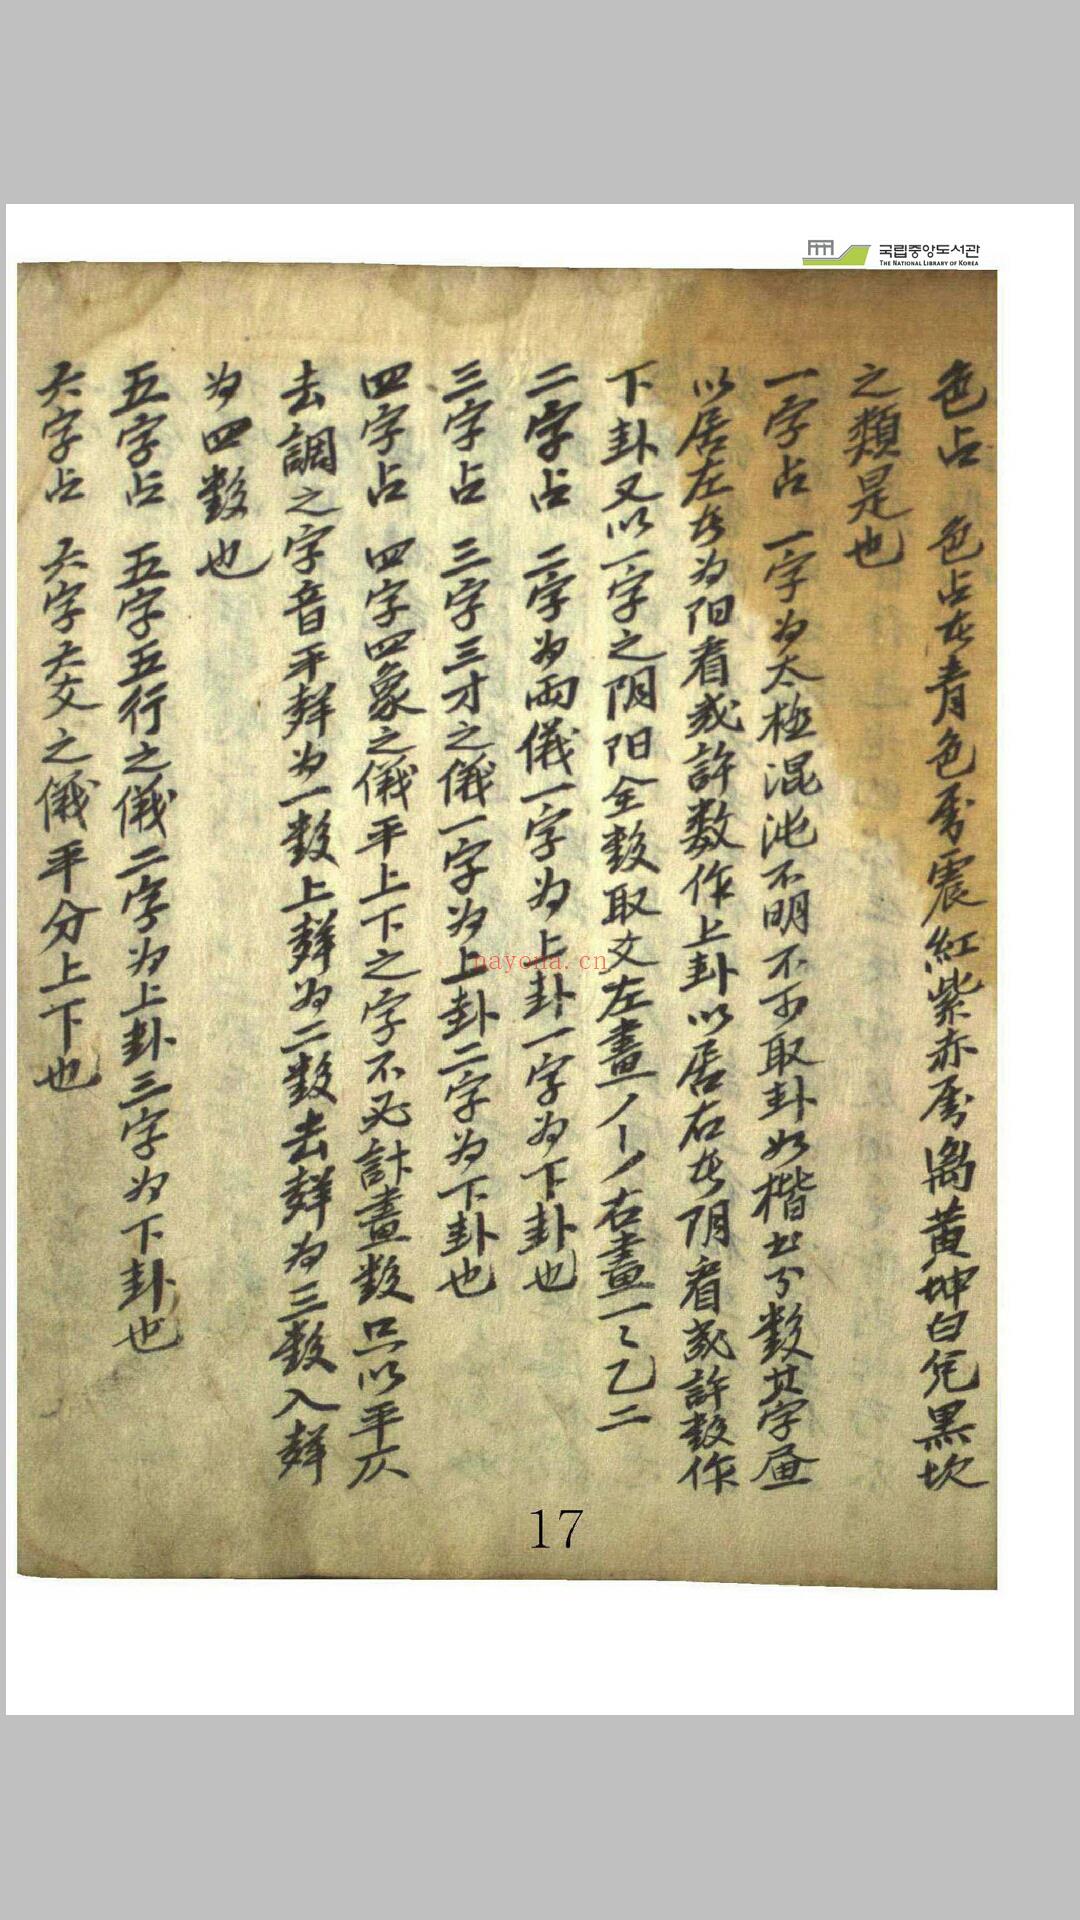 국립중앙도서관
THE NATIONAL LIBRARY OF KOREA
色占　色占者青色属震紅紫赤属离黄坤白兌黒坎
之類是也
一字占　一字为太極混沌不明不可取卦如楷書分数其字画
以居左者为阳看或許数作上卦以居右者阴看或許数作
下卦又以一字之阴阳全数取爻左畫一丿丨丿右畫一乀乙二
二字占　二字为兩儀一字为上卦一字为下卦也
三字占　三字三才之儀一字为上卦二字为下卦也
四字占　四字四象之儀平上下之字不必計畫数只以平仄
去調之字音平聲为一数上聲为二数去聲为三数入聲
为四数也
五字占　五字五行之儀二字为上卦三字为下卦也
六字占　六字六爻之儀平分上下也
nayona.cn
17